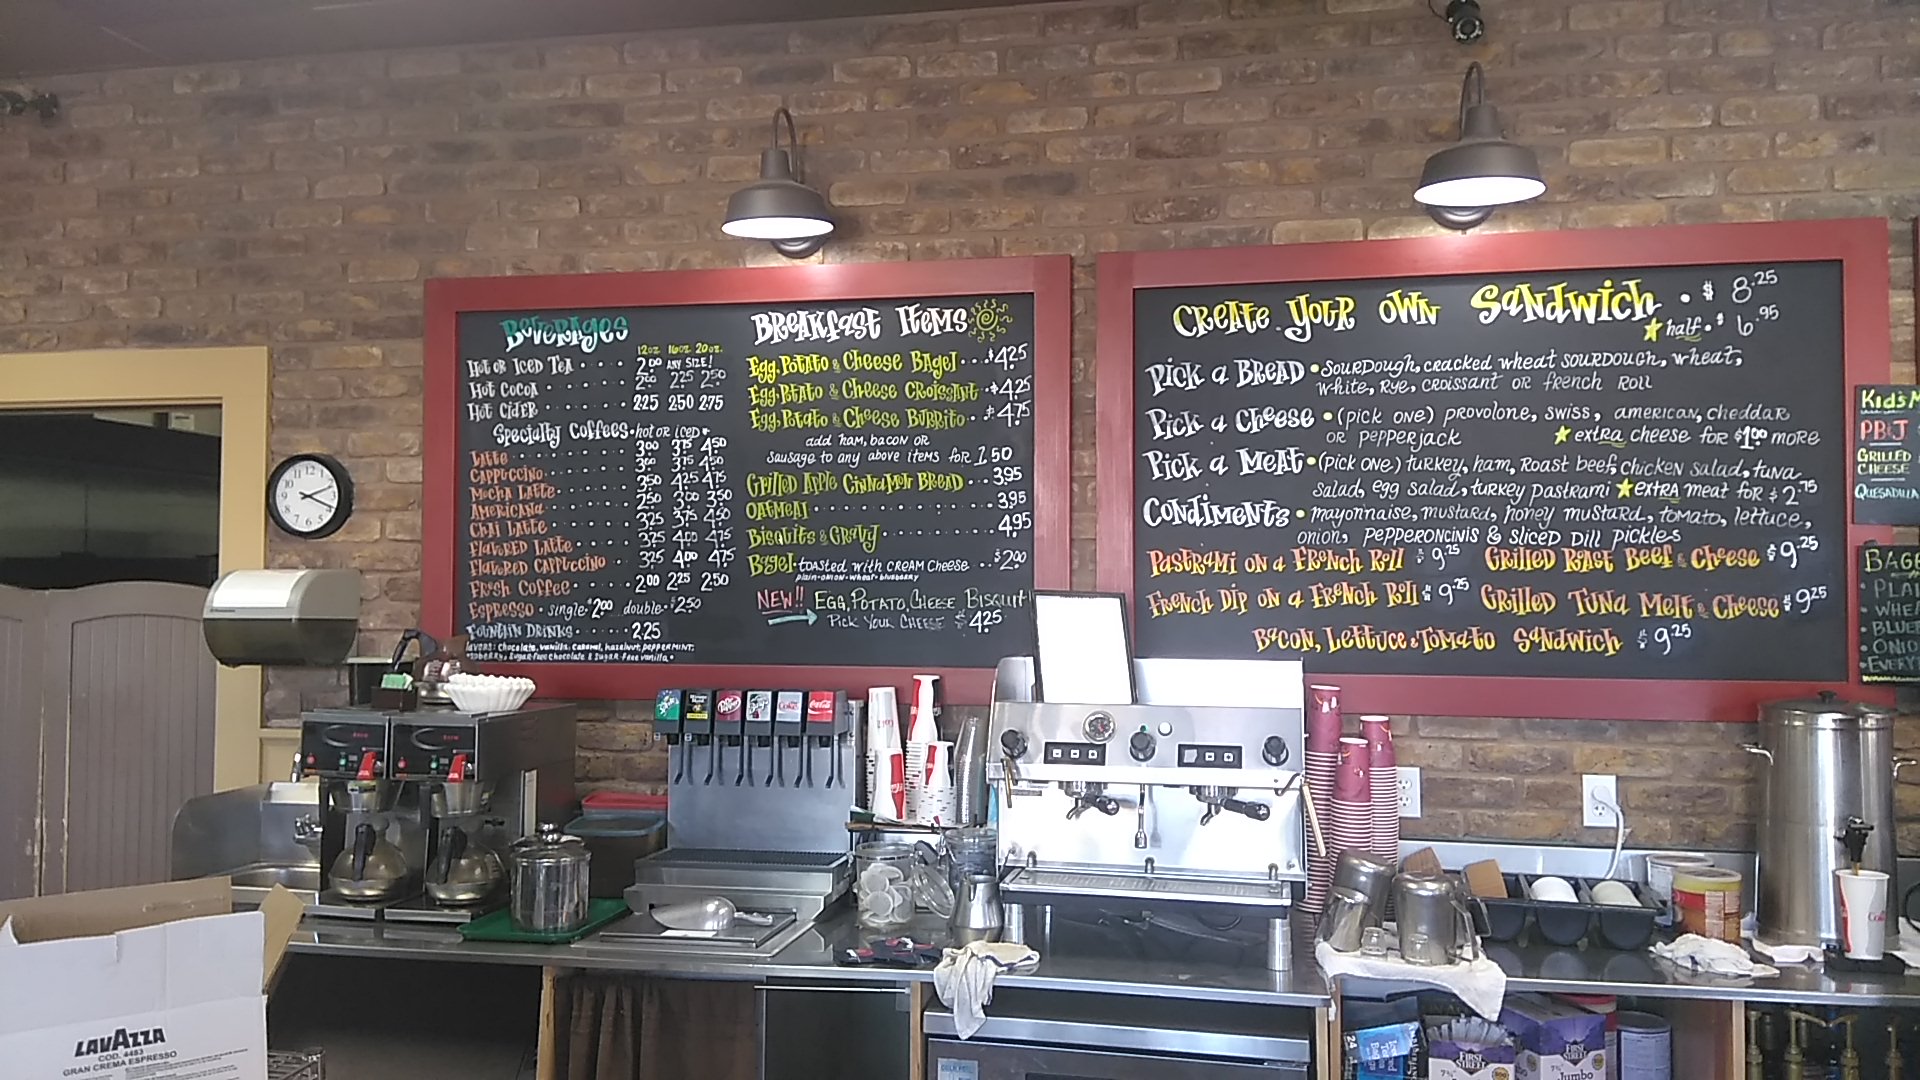 Beverages
12oz. 16oz. 20oz.
Hot or Iced Tea 2.00 ANY SIZE!
Hot Cocoa 2.00 2.25 2.50
Hot Cider 2.25 2.50 2.75
Specialty Coffees • hot or iced
Latte 3.00 3.75 4.50
Cappuccino 3.00 3.75 4.50
Mocha Latte 3.50 4.25 4.75
Americana 2.50 3.00 3.50
Chai Latte 3.25 3.75 4.50
Flavored Latte 3.25 4.00 4.75
Flavored Cappuccino 3.25 4.00 4.75
Fresh Coffee 2.00 2.25 2.50
Espresso • single • $2.00 double • $2.50
Fountain Drinks 2.25
chocolate, vanilla, caramel, hazelnut, peppermint,
sugar-free chocolate & sugar-free vanilla •
Breakfast Items
Egg, Potato & Cheese Bagel . . . $4.25
Egg, Potato & Cheese Croissant • $4.25
Egg, Potato & Cheese Burrito . $4.75
add ham, bacon or
sausage to any above items for 1.50
Grilled Apple Cinnamon Bread . . . 3.95
Oatmeal 3.95
Bisquits & Gravy 4.95
Bagel • toasted with cream cheese . . $2.00
plain • onion • wheat • blueberry
NEW!! Egg, Potato, Cheese Bisquit
Pick Your Cheese $4.25
Create Your Own Sandwich . $8.25
half . $6.95
Pick a Bread • sourdough, cracked wheat sourdough, wheat,
white, rye, croissant or french roll
Pick a Cheese • (pick one) provolone, swiss, american, cheddar
or pepperjack extra cheese for $1.00 more
Pick a Meat • (pick one) turkey, ham, roast beef, chicken salad, tuna
salad, egg salad, turkey pastrami extra meat for $2.75
Condiments • mayonnaise, mustard, honey mustard, tomato, lettuce,
onion, pepperoncinis & sliced dill pickles
Pastrami on a French Roll $9.25 Grilled Roast Beef & Cheese $9.25
French Dip on a French Roll $9.25 Grilled Tuna Melt & Cheese $9.25
Bacon, Lettuce & Tomato Sandwich $9.25
Kid's
PB&J
Grilled
Cheese
Quesadilla
• Onio
LAVAZZA
COD. 4483
GRAN CREMA ESPRESSO
Dr Pepper
Coke
Coca-Cola
24
FIRST STREET
FIRST STREET
Jumbo